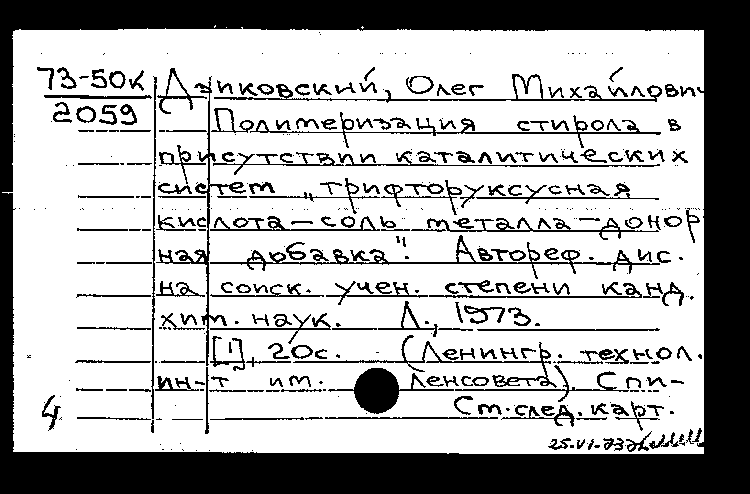 73-50к Дзиковский, Олег Михайлович
2059 Полимеризация стирола в
присутствии каталитических
систем „трифторуксусная
кислота – соль металла – донор
ная добавка". Автореф. дис.
на соиск. учен. степени канд.
хим. наук. Л., 1973.
[1], 20с. (Ленингр. технол.
ин-т им. Ленсовета). Спи-
4 См. след. карт.
25.VI.73